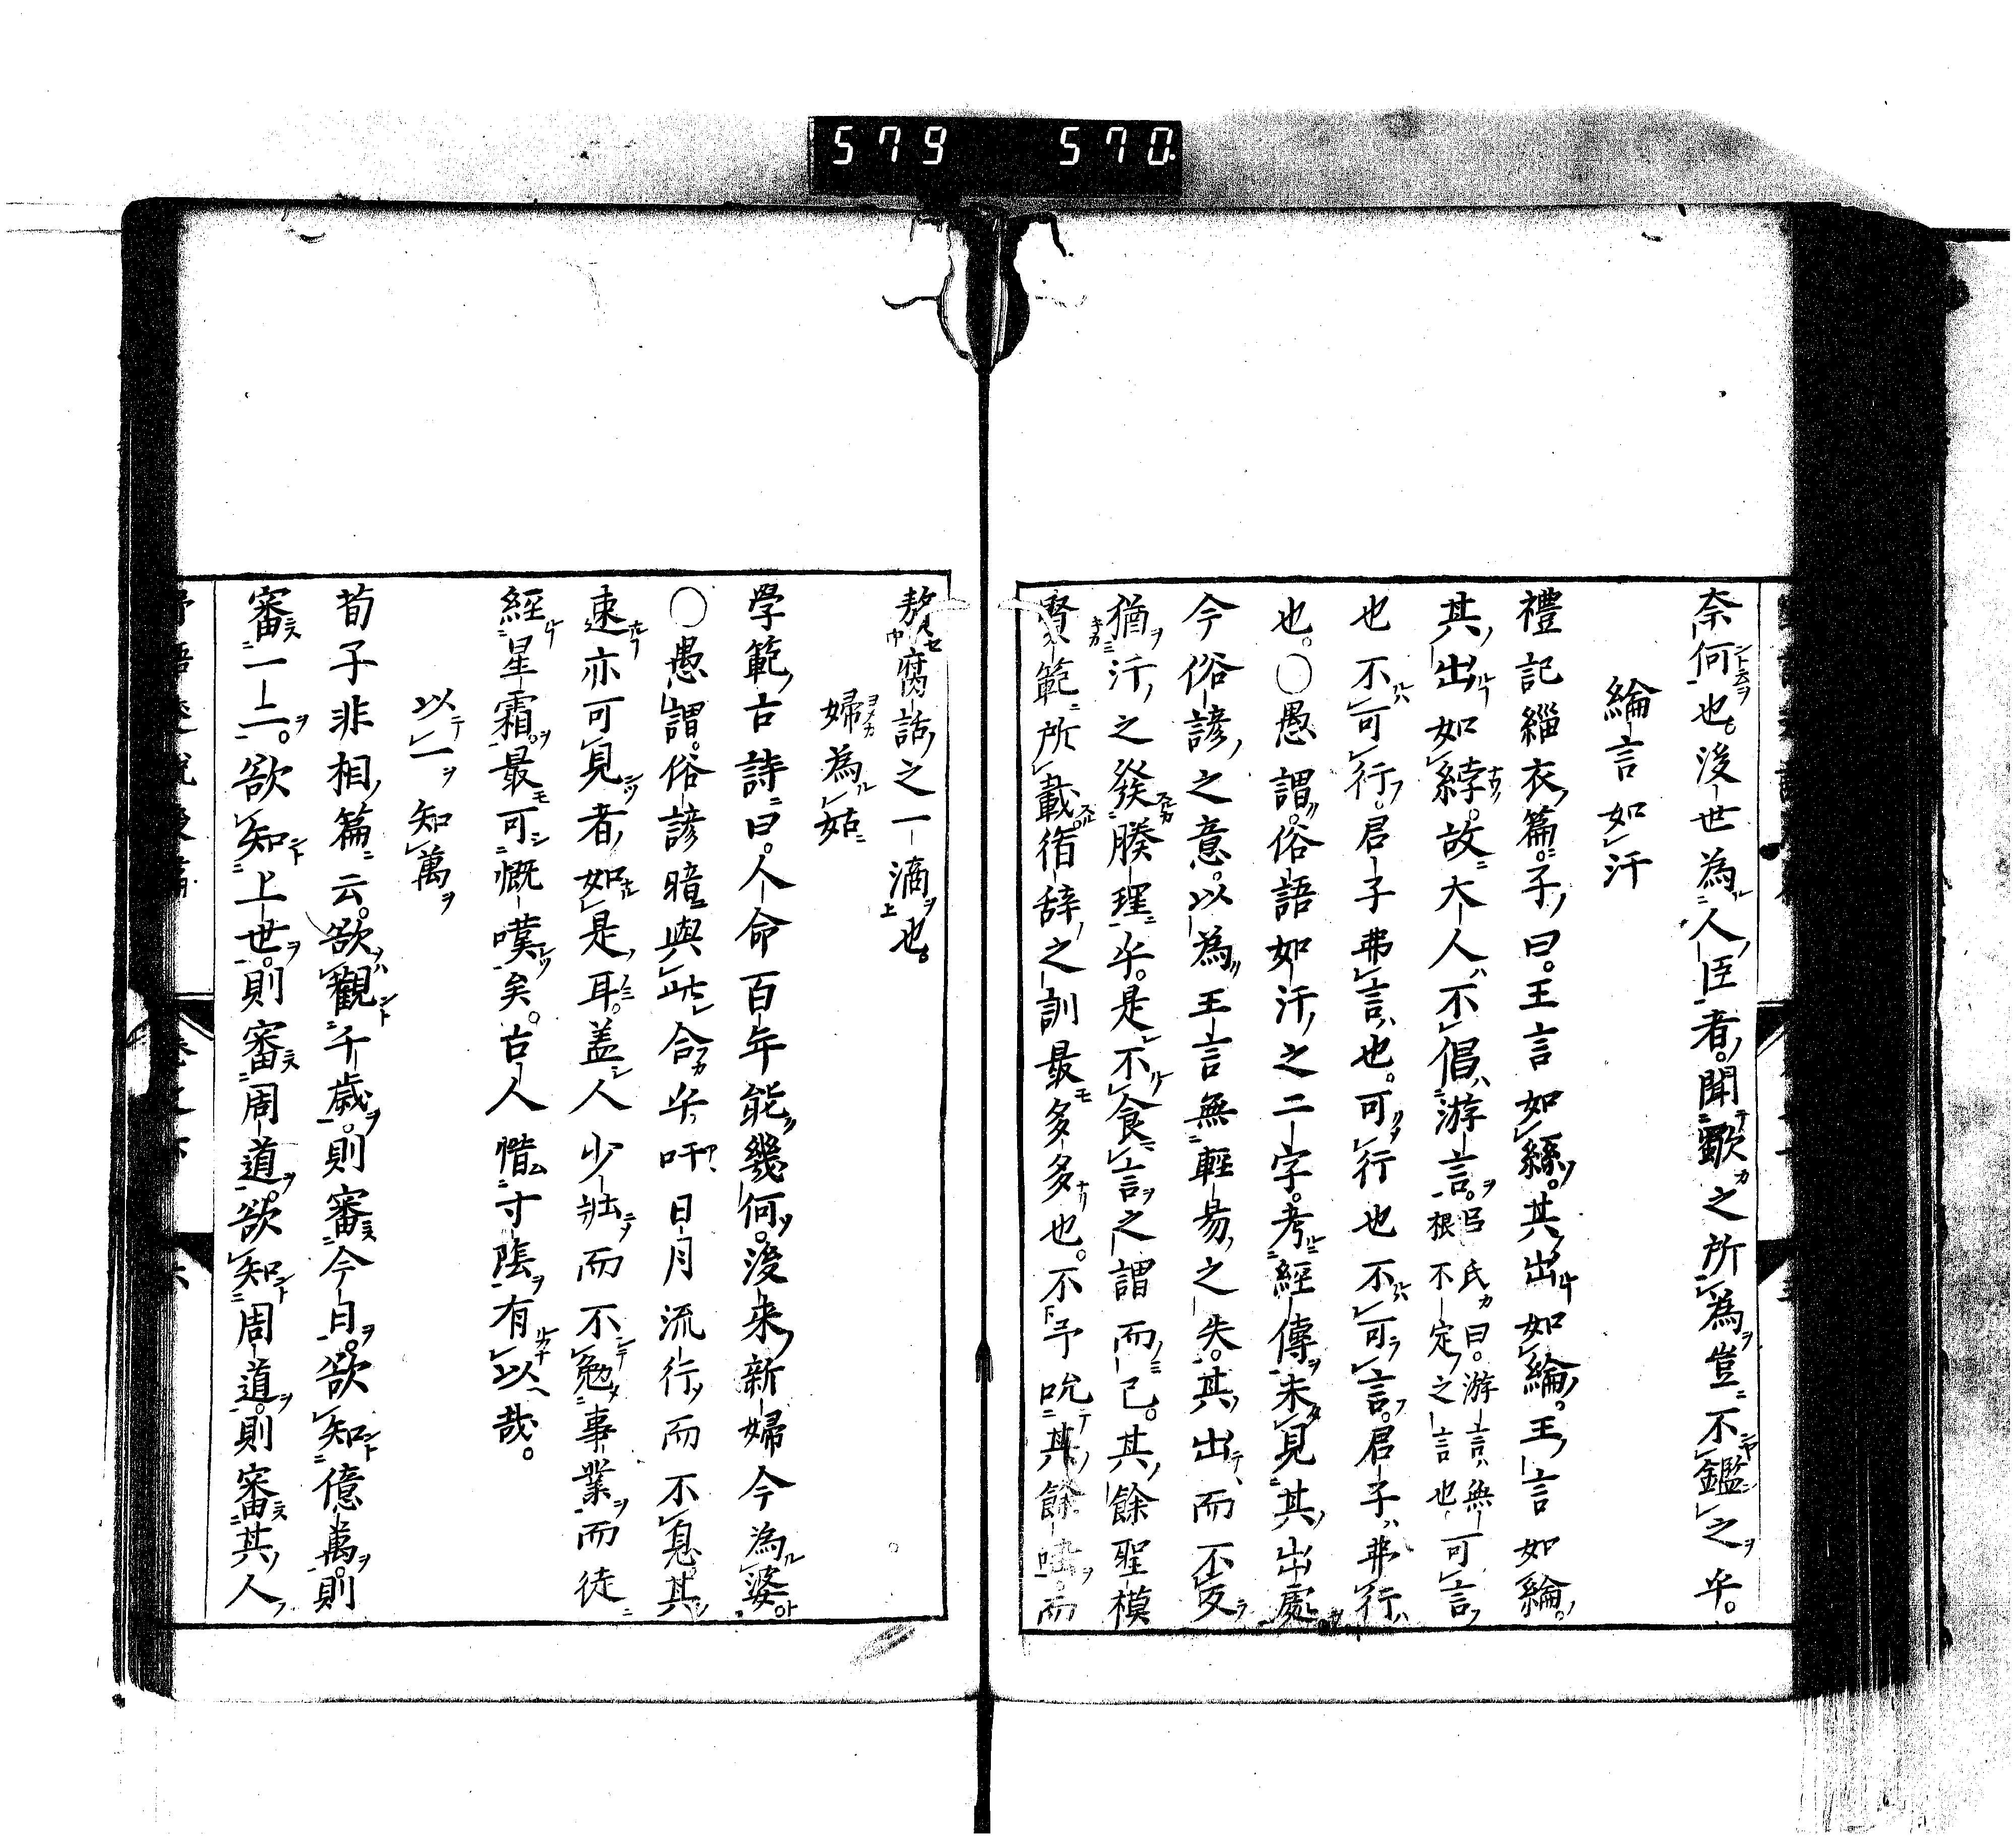 579 570
奈何也。後世為人臣者。聞歜之所為豈不鑑之乎。
綸言如汗
禮記緇衣篇。子曰。王言如絲。其出如綸。王言如綸。
其出如綍。故大人不倡游言。呂氏曰。游言無根不定之言也
也不可行。君子弗言也。可行也不可言。君子弗行
也。〇愚謂。俗語如汗之二字。考經傳未見其出處
今俗諺之意。以為王言無輕易之失。其出而不反
猶汗之發腠理乎。是不食言之謂而已。其餘聖模
賢範所載。徃辞之訓最多多也。不予吮其餘而
腐話之一滴也。
婦為姑
學範古詩曰。人命百年能幾何。後来新婦今為婆
〇愚謂。俗諺暗與此合乎。吁日月流行而不息。其
速亦可見者如是耳。盖人少壯而不勉事業。而徒
經星霜。最可慨嘆矣。古人惜寸陰。有以哉。
以一知萬
荀子非相篇云。欲觀千歳。則審今日。欲知億萬。則
審一二。欲知上世。則審周道。欲知周道。則審其人